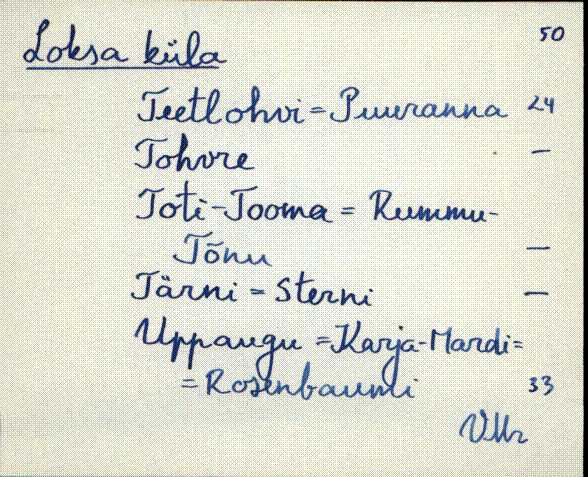 Loksa küla 50
Teetlohvi = Puuranna 24
Tohvre —
Toti-Tooma = Rummu-
Tõnu —
Tärni = Sterni —
Uppaugu = Karja-Mardi =
= Rosenbaumi 33